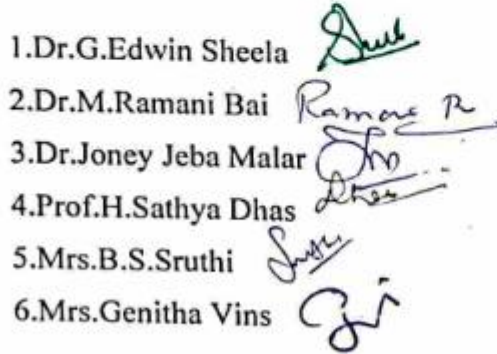 1.Dr.G.Edwin Sheela
2.Dr.M.Ramani Bai Ramani R
3.Dr.Joney Jeba Malar
4.Prof.H.Sathya Dhas Dhas
5.Mrs.B.S.Sruthi
6.Mrs.Genitha Vins